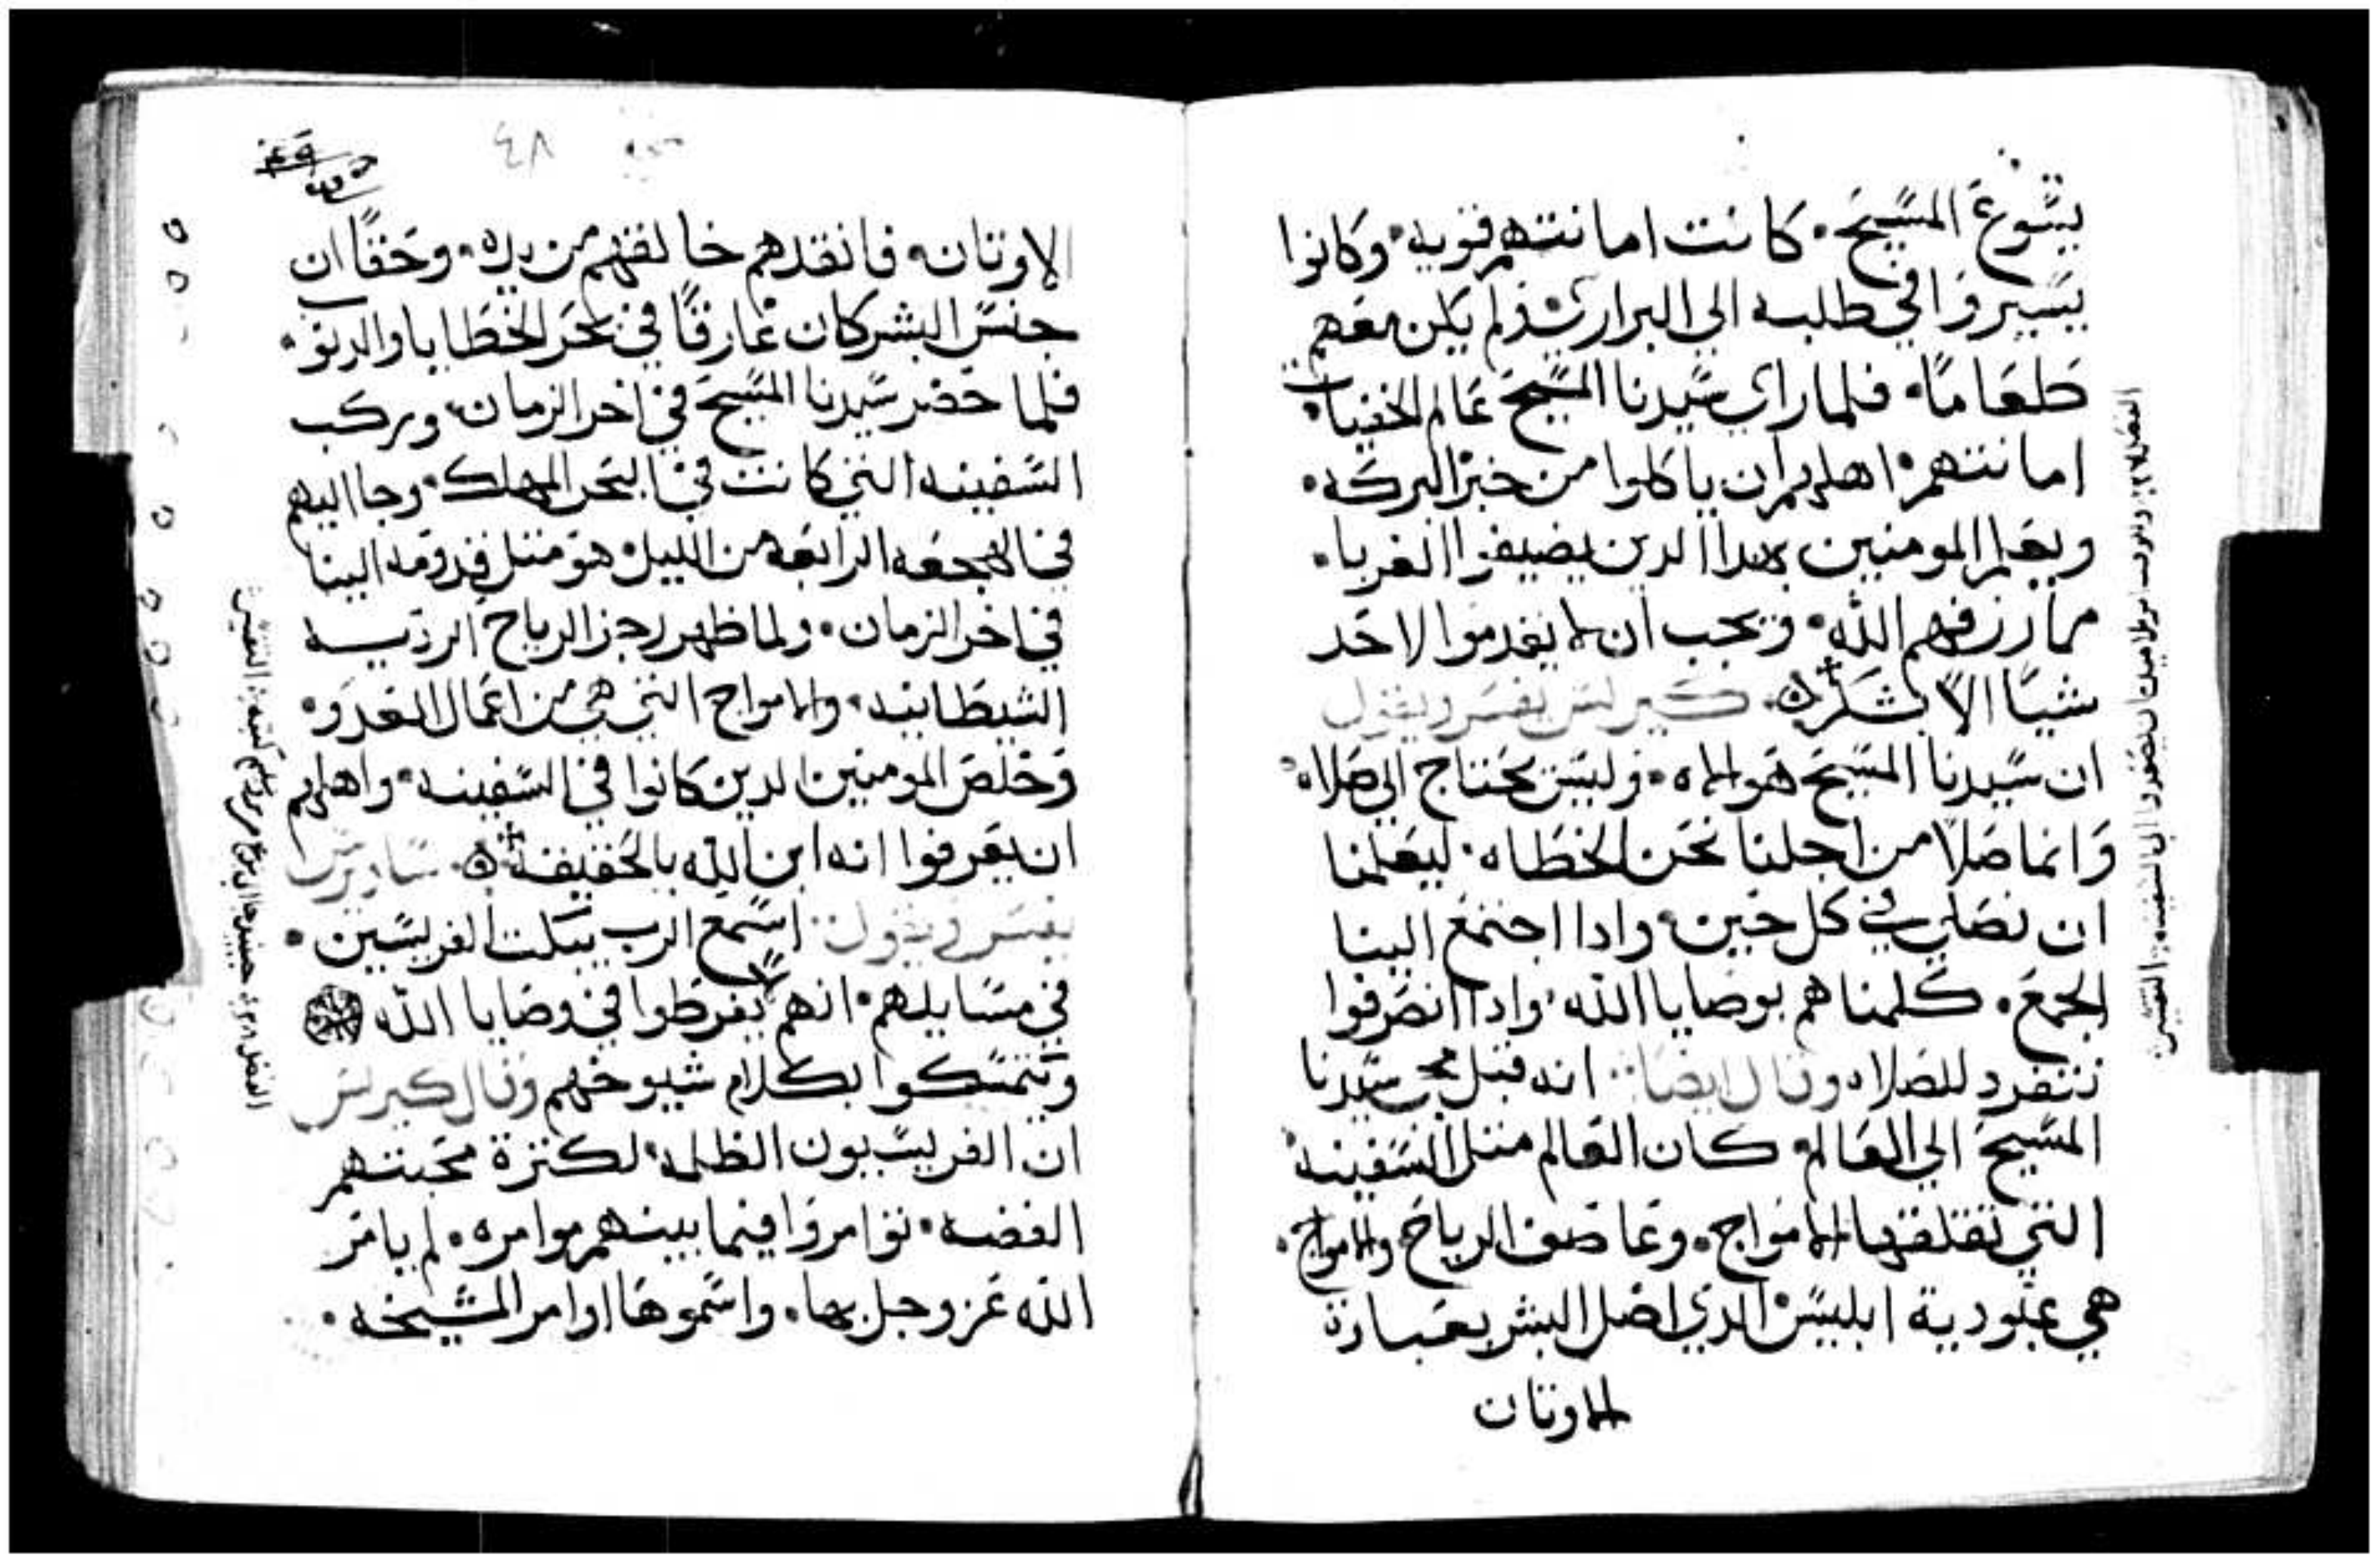 يسوع المسيح. كانت امانتهم قويه. وكانوا
يسيروا في طلبه الي البراري ولم يكن معهم
طعاما. فلما راي سيدنا المسيح عالم الخفيات
امانتهم. اهلهم ان ياكلوا من خبز البركه.
ويعلم المومنين بهدا الدين يضيفوا الغربا.
مما رزقهم الله. ويجب ان لا يقدموا لاحد
شيا الا بشكر ه. كيرلس يفسر ويقول
ان سيدنا المسيح هو الاه. وليس يحتاج الي صلاه
وانما صلا من اجلنا نحن الخطاه. ليعلمنا
ان نصلي في كل حين. وادا اجتمع الينا
الجمع. كلمناهم بوصايا الله. وادا انصرفوا
نتفرد للصلاه وقال ايضا: انه قبل مجي سيدنا
المسيح الي العالم. كان العالم متل السفينه
التي تقلقها الامواج. وعاصف الرياح والامواج.
هي عبودية ابليس الدي اضل البشر بعبادة
الاوتان
٤٨
الاوتان. فانقدهم خالقهم من يده. وحقا ان
جنس البشر كان غارقا في بحر الخطايا والدنوب.
فلما حضر سيدنا المسيح في اخر الزمان وركب
السفينه التي كانت في البحر المهلك. وجا اليهم
في الهجعه الرابعه من الليل. هو متل قدومه الينا
في اخر الزمان. ولما ظهر زجر الرياح الرديه
الشيطانيه. والامواج التي هي من اعمال العدو.
وخلص المومنين الدين كانوا في السفينه. واهلهم
ان يعرفوا انه ابن الله بالحقيقه ه. ساويرس
يفسر ويقول: اسمع الرب يبكت الفريسين.
في مسايلهم. انهم يفرطوا في وصايا الله
ويتمسكوا بكلام شيوخهم وقال كيرلس
ان الفريسيون الظلمه لكترة محبتهم
الفضه. توامروا فيما بينهم موامره. لم يامر
الله عز وجل بها. واسموها اوامر المشيخه.